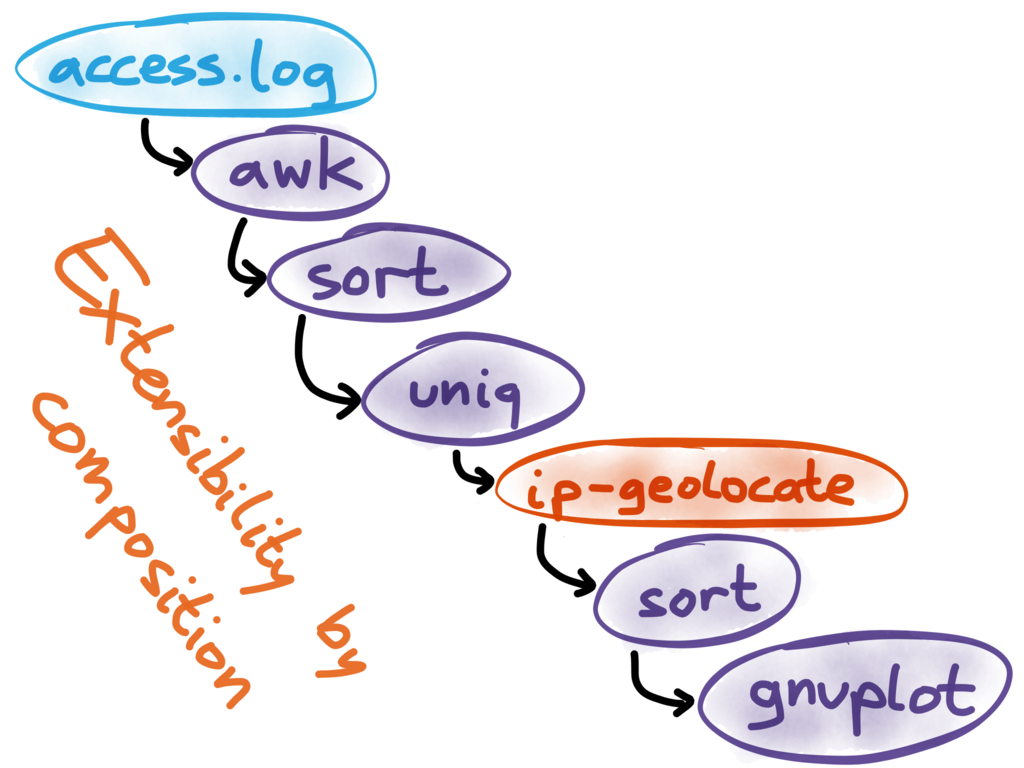 access.log
awk
sort
uniq
ip-geolocate
sort
gnuplot
Extensibility by
composition